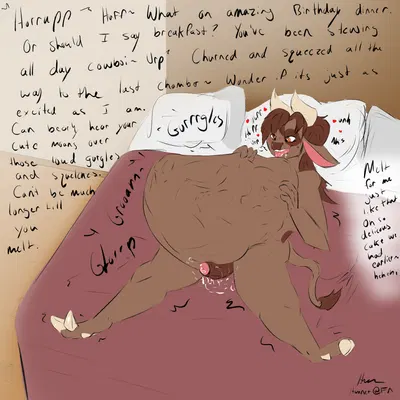 Horrupp~ Hurr~ What an amazing Birthday dinner.
Or should I say breakfast? You've been stewing
all day cowboi~ Urp~ Churned and squeezed all the
way to the last chamber~ Wonder if its just as
excited as I am.
Can bearly hear your
cute moans over
those loud gurgles
and squelches.
Can't be much
longer till
you
melt.
Gurrrgles
Grooonnn
Glorrp
Melt
for me
just
like that
Oh so
delicious
cake we
had
earlier~
hehehe.